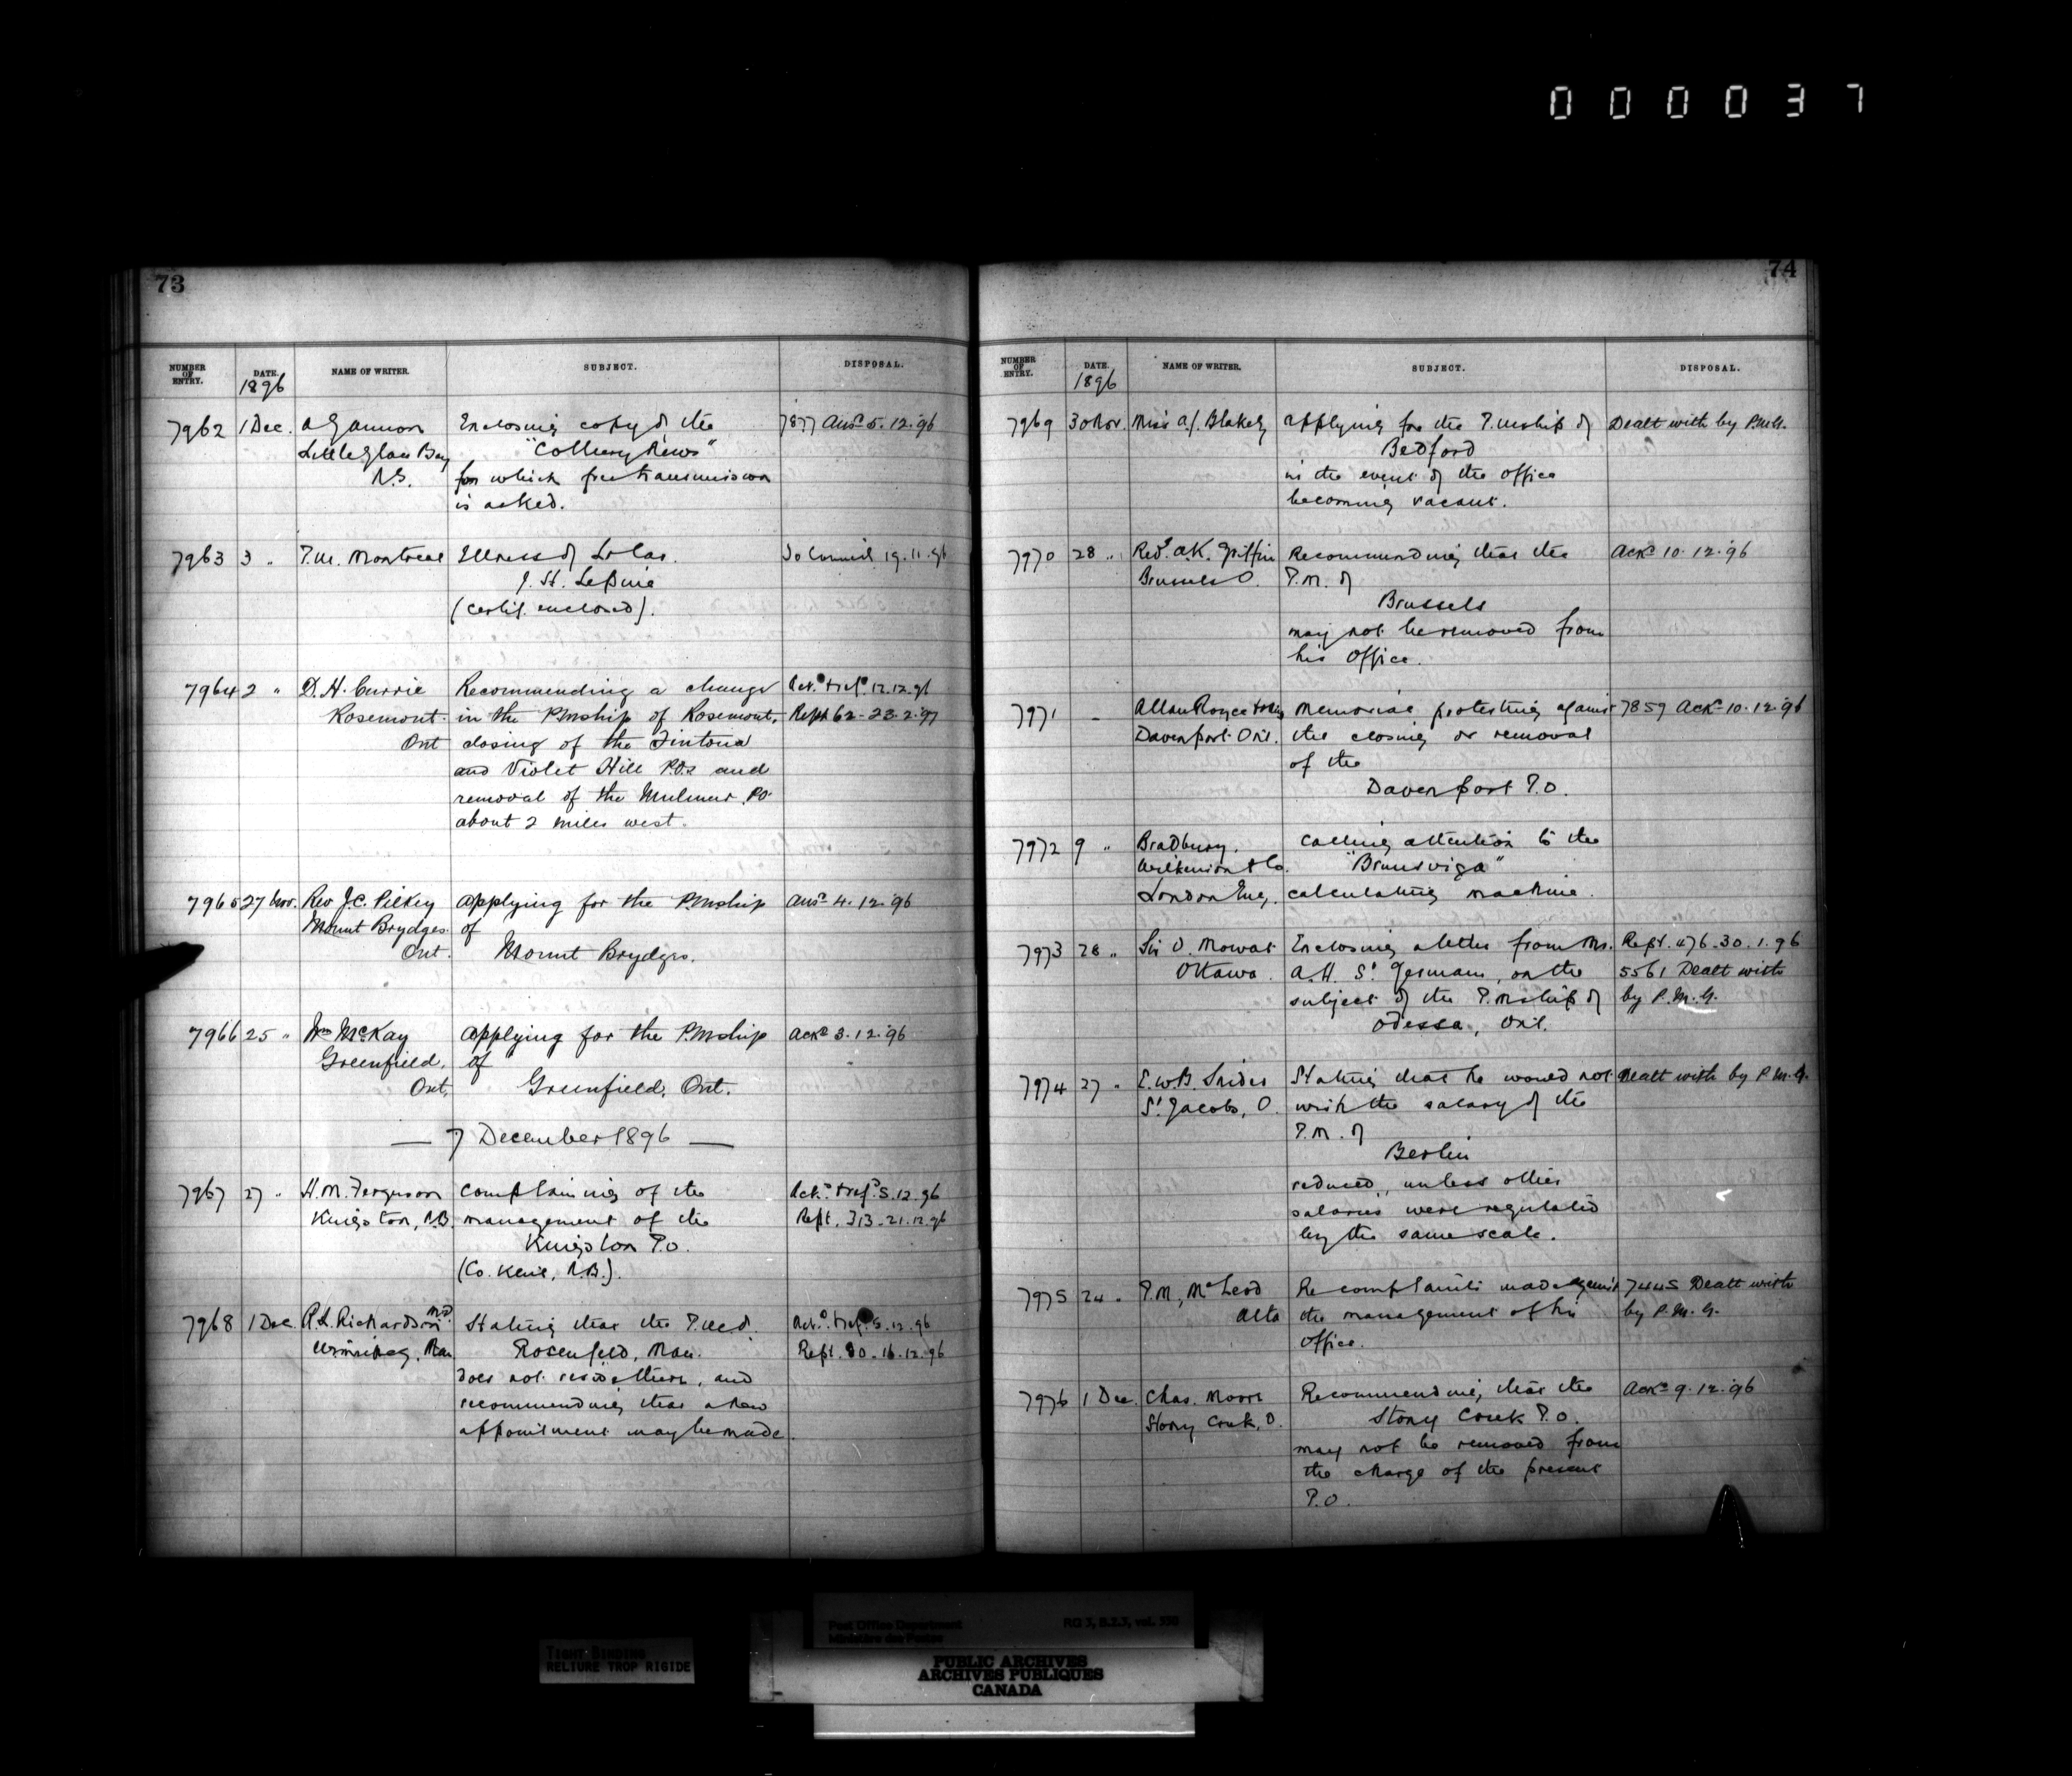 000037
73
NUMBER OF ENTRY. DATE. NAME OF WRITER. SUBJECT. DISPOSAL.
1896
7962 1 Dec. Enclosing copy of the 7877 Ansd 5.12.96
Little Glace Bay "Colliery News"
N.S. for which free transmission
is asked.
7963 3 " P.M. Montreal Illness of To Council 19.11.96
(Certif. enclosed).
7964 2 " D.H. Currie Recommending a change Ack.d & ref.d 12.12.96
Rosemont. in the PMship of Rosemont, Rept 62-23.2.97
Ont closing of the Tintona
and Violet Hill P.Os and
removal of the Mulmur P.O.
about 2 miles west.
7965 27 Nov. Rev J.C. Pilkey Applying for the P.Mship Ansd 4.12.96
Mount Brydges of
Ont. Mount Brydges.
7966 25 " Wm McKay Applying for the P.Mship Ackd 3.12.96
Greenfield, of
Ont. Greenfield, Ont.
— 7 December 1896 —
7967 27 " H.M. Ferguson Complaining of the Ack.d & ref.d 5.12.96
Kingston, N.B. management of the Rept. 313-21.12.96
Kingston P.O.
(Co. Kent, N.B.).
7968 1 Dec. R.S. Richardson M.D. Stating that the P.M. of Ack.d & ref.d 5.12.96
Winnipeg, Man Rosenfeld, Man. Rept. 80-16.12.96
does not reside there, and
recommending that a new
appointment may be made.
74
NUMBER OF ENTRY. DATE. NAME OF WRITER. SUBJECT. DISPOSAL.
1896
7969 30 Nov. Miss A.J. Blakely Applying for the P.Mship of Dealt with by P.M.G.
Bedford
in the event of the office
becoming vacant.
7970 28 " Revd. A.K. Griffin Recommending that the Ackd 10.12.96
Brussels O. P.M. of
Brussels
may not be removed from
his office.
7971 - Allan Royce & others Memorial protesting against 7859 Ackd 10.12.96
Davenport Ont. the closing or removal
of the
Davenport P.O.
7972 9 " Bradbury, Calling attention to the
Wilkinson & Co. "Brunsviga"
London Eng. calculating machine.
7973 28 " Sir O. Mowat Enclosing a letter from Mr. Rept. 476-30.1.96
Ottawa. A.H. St Germain, on the 5561 Dealt with
subject of the P.Mship of by P.M.G.
Odessa, Ont.
7974 27 " E.W.B. Snider Stating that he would not Dealt with by P.M.G.
St Jacobs, O. wish the salary of the
P.M. of
Berlin
reduced, unless other
salaries were regulated
by the same scale.
7975 24 " P.M., McLeod Re complaints made against 7445 Dealt with
Alta the management of his by P.M.G.
office.
7976 1 Dec. Chas. Moore Recommending that the Ackd 9.12.96
Stony Creek, O. Stony Creek P.O.
may not be removed from
the charge of the present
P.O.
Post Office Department RG 3, B.2.3, vol. 550
Ministère des Postes
TIGHT BINDING
RELIURE TROP RIGIDE
PUBLIC ARCHIVES
ARCHIVES PUBLIQUES
CANADA